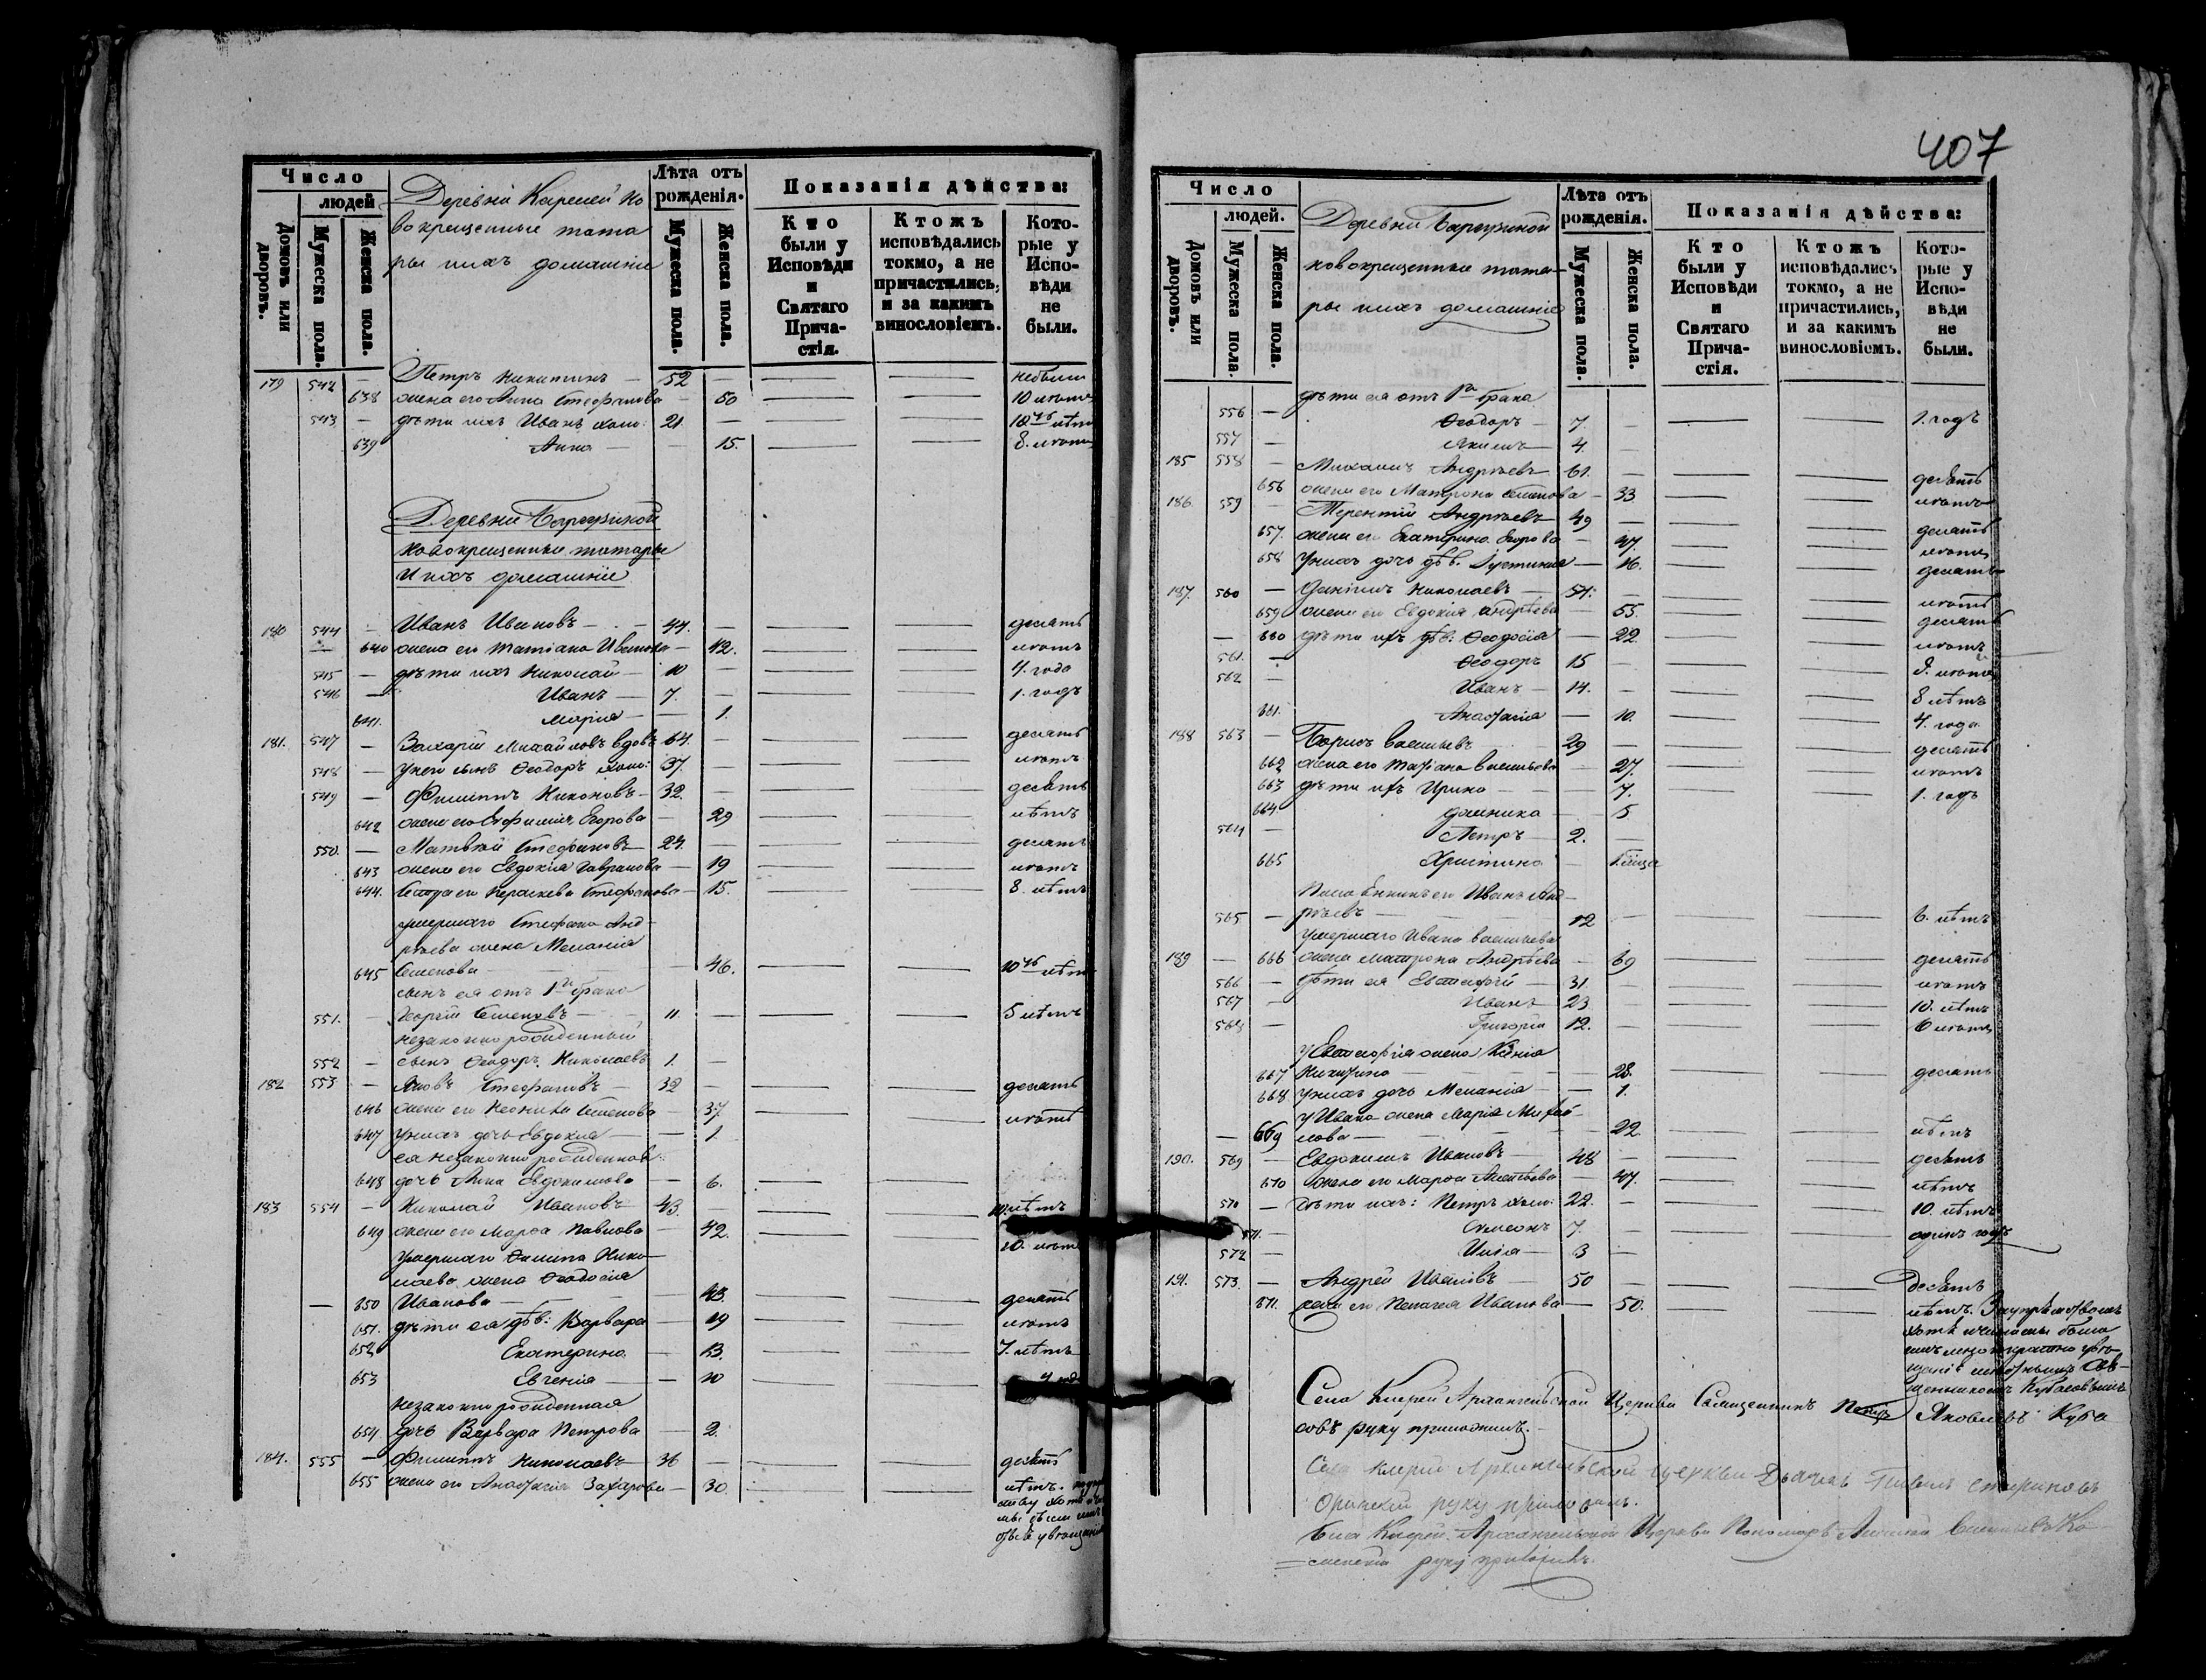 Число
людей
Домовъ или дворовъ.
Мужеска пола.
Женска пола.
Деревни Карешей но
вокрещенные тата
ры и ихъ домашніе
Лѣта отъ рожденія.
Мужеска пола.
Женска пола.
Показанія дѣйства:
Кто были у Исповѣди и Святаго Прича-стія.
Ктожъ исповѣдались токмо, а не причастились, и за какимъ винословіемъ.
Кото-рые у Испо-вѣди не были.
179 542 Петръ Никитинъ — 52 — не были
638 жена его Анна Стефанова — 50 10 лѣтъ
543 — дѣти ихъ Иванъ холо: 21 — 10ть лѣтъ
639 Анна — 15. 8. лѣтъ
Деревни
новокрещенные татары
и ихъ домашніе
180 544 — Иванъ Ивановъ — 44. — десять
— 640 жена его Татіана Иванова — 42. лѣтъ
545 — дѣти ихъ Николай — 10 — 4. года
546 — Иванъ — 7. — 1. годъ
641. Марія — — 1.
181. 547 — Захарій Михайловъ вдовъ 64. — десять
548 — у него сынъ Ѳеодоръ холо: 37. — лѣтъ
549 — Филиппъ Никоновъ — 32. — десять
642 жена его Евфимія Егорова — 29 лѣтъ
550. — Матвей Стефановъ — 24. — десять
643 жена его Евдокія Гаврилова — 19 лѣтъ
644. Сестра его Параскева Стефанова — 15. 8. лѣтъ
умершаго Стефана Анд-
рѣева жена Меланія
645 Семенова — 46. 10ть лѣтъ
сынъ ея отъ 1го брака
551. — Георгій Семеновъ — 11. — 5 лѣтъ
незаконнорожденный
552 — сынъ Ѳеодоръ Николаевъ 1. —
182 553 — Яковъ Стефановъ — 32 десять
646 жена его Неонила Семенова — 37 лѣтъ
647 у нихъ дочь Евдокія — — 1.
ея незаконнорожденная
648 дочь Анна Евдокимова — 6.
183 554 — Николай Ивановъ 43. — 10. лѣтъ
649 жена его Марѳа Павлова — 42. 10. лѣтъ
умершаго Филипа Нико-
лаева жена Ѳеодосія
— 650 Иванова — 43. десять
651. дѣти ея дѣв: Варвара — 19 лѣтъ
652 Екатерина — 13. 7. лѣтъ
653 Евгенія — — 10
незаконнорожденная
654 дочь Варвара Петрова — 2.
184. 555 — Филиппъ Николаевъ — 36 — десять
655 жена его Анастасія Захарова — 30. лѣтъ.
407
Число
людей.
Домовъ или дворовъ.
Мужеска пола.
Женска пола.
Деревни
новокрещенные тата-
ры и ихъ домашніе
Лѣта отъ рожденія.
Мужеска пола.
Женска пола.
Показанія дѣйства:
Кто были у Исповѣди и Святаго Прича-стія.
Ктожъ исповѣдались токмо, а не причастились, и за какимъ винословіемъ.
Кото-рые у Испо-вѣди не были.
дѣти ея отъ 1го брака
556 — Ѳеодоръ — 7. — 1. годъ
557 — Якимъ — 4. —
185 558 — Михаилъ Андрѣевъ — 61. — десять
656 жена его Матрона Семенова — 33 лѣтъ
186. 559 — Терентій Андрѣевъ — 49 — десять
657. жена его Екатерина Егорова — 47. лѣтъ
658 у нихъ дочь дѣв. Іустинія — 16. десять
187. 560 — Даніилъ Николаевъ — 54. — лѣтъ
659 жена его Евдокія Андрѣева — 55. десять
— 660 дѣти ихъ дѣв: Ѳеодосія — 22 лѣтъ
561. — Ѳеодоръ 15 — 8. лѣтъ
562 — Иванъ — 14. — 8 лѣтъ
661. Анастасія — 10. 4. года
188 563 — Борисъ Васильевъ 29 — десять
662 жена его Татіана Васильева — 27. лѣтъ
663 дѣти ихъ Ирина — — 7. 1. годъ
664 Домника — 5
564 — Петръ — 2. —
665 Христина —
его Иванъ Анд-
565 — рѣевъ — 12 — 6. лѣтъ
умершаго Ивана Васильева
189 — 666 жена Матрона Андрѣева — 69 десять
566 — дѣти ея Евстафій — 31. — лѣтъ
567 — Иванъ 23 — 10. лѣтъ
568 — Григорій 12. — 6 лѣтъ
у Евстафія жена Ксенія
667 Никитина — 28. десять
668 у нихъ дочь Меланія — — 1.
у Ивана жена Марія Михай-
— 669 лова — 22 лѣтъ
190. 569 — Евдокимъ Ивановъ — 48 — десять
670 жена его Марѳа Алексѣева — 47. лѣтъ
570 — дѣти ихъ: Петръ холо: 22. — 10. лѣтъ
571. — Симеонъ 7. — одинъ годъ
572 — Илія — 3 —
191. 573. — Андрей Ивановъ — 50 — десять
671. жена его Пелагея Иванова — 50. лѣтъ. За упрямствомъ
хотя и
имъ неоднократно увѣ-
щаніе Свя-
щенникомъ Кубасовымъ
Села Архангельской Церкви Священникъ Петръ Яковлевъ Куба
совъ руку приложилъ.
Села Архангельской церкви Дьячекъ Павелъ
руку приложилъ.
Села Архангельской Церкви Пономарь
руку приложилъ.